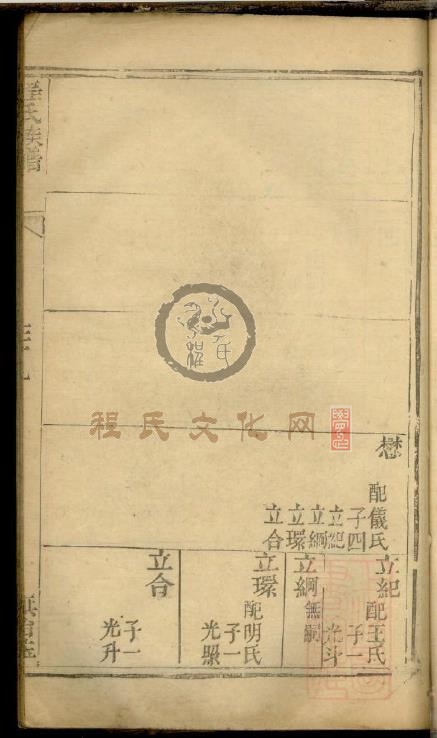 程氏族譜
程氏文化网
懋
配儀氏
子四
立紀
立綱
立環
立合
立紀
配王氏
子一
光斗
立綱
無嗣
立環
配明氏
子一
光照
立合
子一
光升